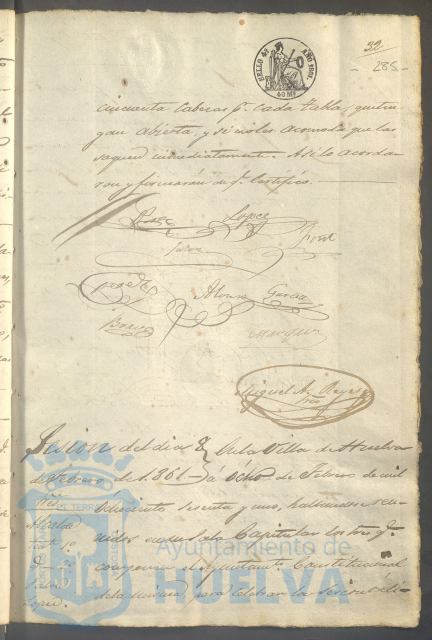 SELLO 4º AÑO 1861.
40 Ms
32
285
cincuenta cabezas pr. cada tabla, que ten
gan abierta, y si no les acomoda, que las
saquen inmediatamente. Así lo acorda-
ron y firmarán de q. Certifico.
Lopez
Alonso Garcia
Bravo
Marquez
Miguel A. Reyes
Srio
Sesion del dia 8
de Febrero de 1.861.
En la Villa de Huelva
á Ocho de Febrero de mil
Ochocientos sesenta y uno, hallandose reu-
nidos en su Sala Capitular los Sres. q.
componen el Ayuntamto. Constitucional
de la misma, para celebrar la sesion
Sres.
Alcalde
Lopez.
Ayuntamiento de
HUELVA